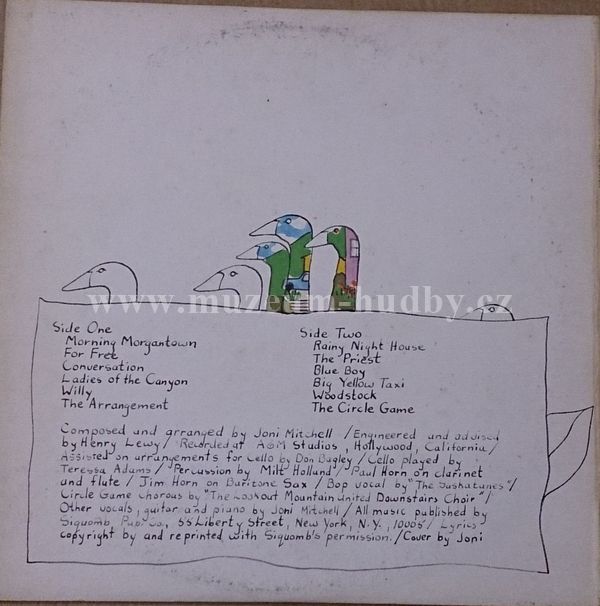 www.muzeum-hudby.cz
Side One
Morning Morgantown
For Free
Conversation
Ladies of the Canyon
Willy
The Arrangement
Side Two
Rainy Night House
The Priest
Blue Boy
Big Yellow Taxi
Woodstock
The Circle Game
Composed and arranged by Joni Mitchell / Engineered and advised
by Henry Lewy / Recorded at A&M Studios, Hollywood, California /
Assisted on arrangements for Cello by Don Bagley / Cello played by
Teressa Adams / Percussion by Milt Holland / Paul Horn on clarinet
and flute / Jim Horn on Baritone Sax / Bop vocal by "The Saskatunes" /
Circle Game Chorous by "The Lookout Mountain United Downstairs Choir" /
Other vocals, guitar and piano by Joni Mitchell / All music published by
Siquomb, 55 Liberty Street, New York, N.Y., 10005 / Lyrics
copyright by and reprinted with Siquomb's permission. / Cover by Joni